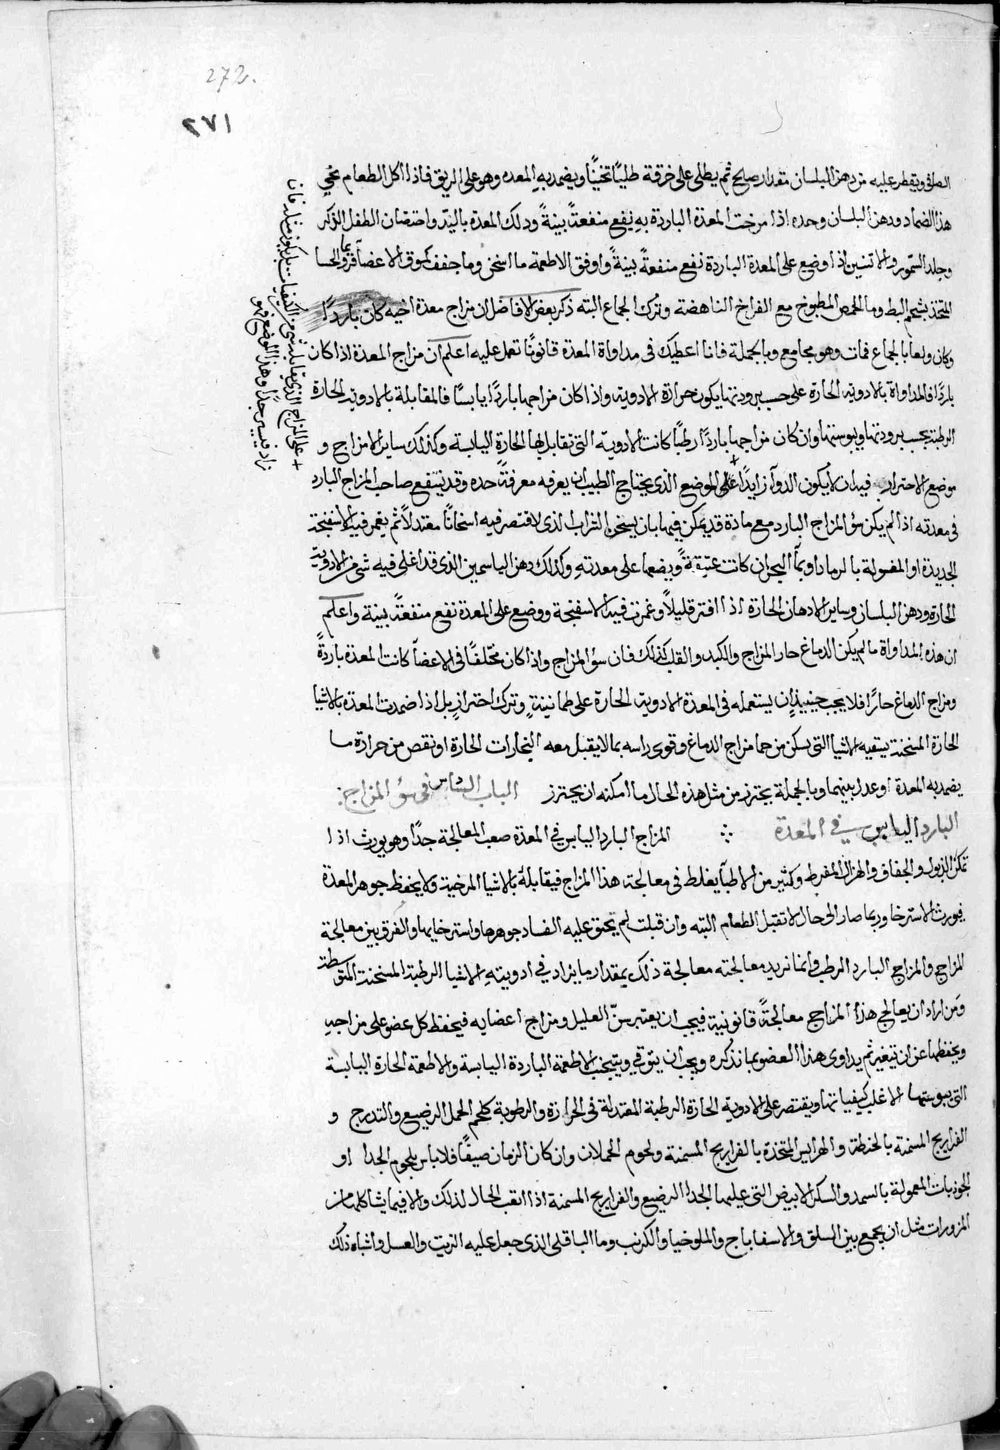 272.
٢٧١
الطلاوة ويقطر عليه من دهن البلسان مقدار صالح ثم يطلى على خرقة طليًا ثخينًا ويضمد به المعدة وهو على الريق فاذا اكل الطعام نحي
هذا الضماد ودهن البلسان وحده اذا مرخت المعدة الباردة به نفع منفعتًا بينةً ودلك المعدة باليد واحتضان الطفل الذكر
وجلد السمور والاتنين اذا وضع على المعدة الباردة نفع منفعةً بينةً واوفق الاطعمة ما اسخن وما جفف كسوق الاعضا والحسا
المتخذ بشحم البط وما الحمص المطبوخ مع الفراخ الناهضة وترك الجماع البته ذكر بعض الافاضل ان مزاج معدة اخيه كان باردًا
وكان ولعا بالجماع فمات وهو مجامع وبالجملة فانا اعطيك في مداواة المعدة قانونًا تعمل عليه اعلم ان مزاج المعدة اذا كان
باردًا فالمداواة بالادوية الحارة على حسب برودتها يكون حرارة الادوية واذا كان مزاجها باردًا يابسًا فالمقابلة بالادوية الحارة
الرطبة بحسب برودتها ويبوستها وان كان مزاجها باردًا رطبًا كانت الادوية التي تقابل بها الحارة اليابسة وكذلك ساير الامزاج و
موضع الاحتراز فيه ان لا يكون الدوآ زايدًا + على الموضع الذي يحتاج الطبيب ان يعرفه معرفةً حده وقد ينتفع صاحب المزاج البارد
في معدته اذا لم يكن سؤ المزاج البارد مع مادة قد يمكن فيها بان يسخن التراب الذي لا قشر فيه اسخانًا معتدلًا ثم يغمر فيه الاسفنجة
الجديدة او المغسولة بالرماد او بمآ البحر ان كانت عتيقةً ويضعها على معدته وكذلك دهن الياسمين الذي قد اغلي فيه شي من الادوية
الحارة ودهن البلسان وساير الادهان الحارة اذا افتر قليلًا وغمزت فيه الاسفنجة ووضع على المعدة نفع منفعتًا بينة واعلم
ان هذه المداواة ما لم يكن الدماغ حار المزاج والكبد والقلب كذلك فان سؤ المزاج واذا كان مختلفًا في الاعضآ كانت المعدة باردةً
ومزاج الدماغ حارًا فلا يجب حينيذٍ ان يستعمله في المعدة الادوية الحارة على طمانينةٍ وترك احترازٍ بل اذا ضمدت المعدة بالاشيا
الحارة المسخنة يسقيه الاشيا التي يسكن من حما مزاج الدماغ وقوى راسه بما لا يقبل معه البخارات الحارة او نقص من حرارة ما
يضمد به المعدة او عدل بينهما وبالجملة يحترز من مثل هذه الحال ما امكنه ان يحترز الباب السادس في سؤ المزاج
البارد اليابس في المعدة ∴ المزاج البارد اليابس في المعدة صعب المعالجة جدًا وهو يورث اذا
تمكن الذبول والجفاف والهزال المفرط وكثير من الاطبآ يغلط في معالجة هذا المزاج فيقابله بالاشيا المرخية ولا يحفظ جوهر المعدة
فيورث الاسترخا وربما صار الى حال لا تقبل الطعام البتة وان قبلت لم يحتو عليه الفساد جوهرها واسترخايها والفرق بين معالجة
المزاج والمزاج البارد الرطب فانما نريد معالجته معالجة ذلك بمقدار ما يزاد في ادويته الاشيا الرطبة المسخنة المتوسطة
ومن اراد ان يعالج هذا المزاج معالجةً قانونية فيجب ان يعتبر سنّ العليل ومزاج اعضايه فيحفظ كل عضو على مزاجه
ويحفظها عن ان تتغير ثم يداوى هذا العضو بما نذكره ويجب ان يتوقى ويتجنب الاطعمة الباردة اليابسة والاطعمة الحارة اليابسة
التي يبوستها الاغلب كيفياتها ويقتصر على الادوية الحارة الرطبة المعتدلة في الحرارة والرطوبة كلحم الحمل الرضيع والتدرج و
الفراريج المسمنة بالحنطة والهرايس المتخذة بالفراريج المسمنة ولحوم الحملان وان كان الزمان صيفًا فلا باس بلحوم الجدا او
الجوذبات المعمولة بالسميد والسكر الابيض التي عليها الجدا الرضيع والفراريج المسمنة اذا اتفق الحال لذلك والا فيما يشاكلها من
المزورات مثل ان يجمع بين السلق والاسفاناج والملوخيا والكرنب وما الباقلى الذي جعل عليه الزيت والعسل واشباه ذلك
+ على المزاج الذي يقابله شي من الكيفيات بل يكون مثله فان
زاد فيسير جدًا وهذا الموضع فهو